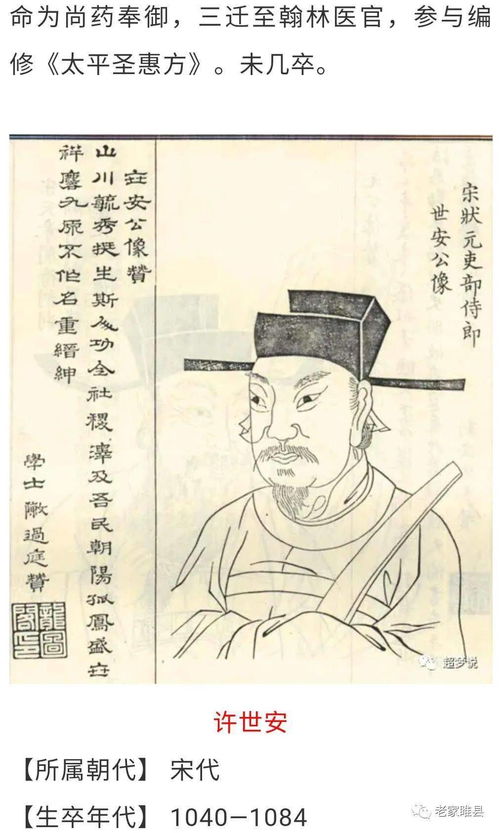 命为尚药奉御，三迁至翰林医官，参与编
修《太平圣惠方》。未几卒。
宋狀元吏部侍郎
世安公像
世安公像贊
山川毓秀挺生斯人功全社稷澤及吾民朝陽孤鳳盛世
祥麐九原不作名重縉紳
學士 過庭贊
龍圖
閣印
超梦说
许世安
【所属朝代】 宋代
【生卒年代】 1040—1084
老家睢县